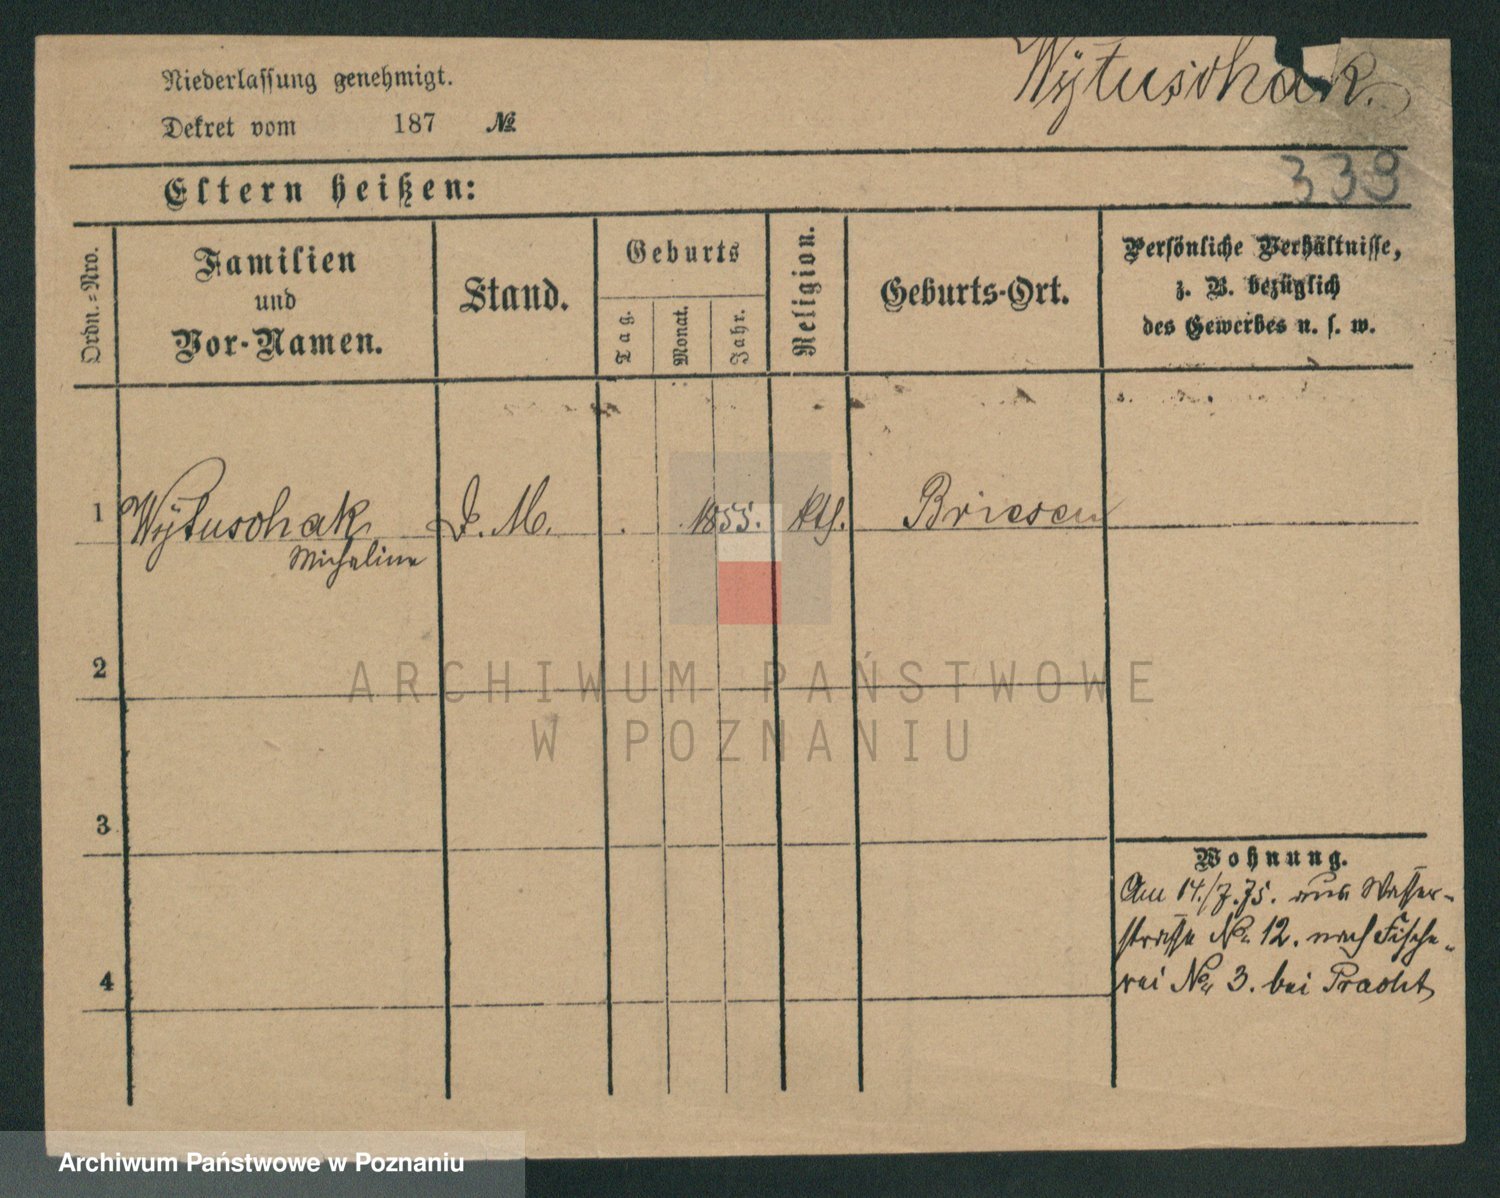 Wÿtuschak.
Niederlassung genehmigt.
Dekret vom 187 №
339
Eltern heißen:
Ordn.=Nro.
Familien
und
Vor-Namen.
Stand.
Geburts
Tag.
Monat.
Jahr.
Religion.
Geburts-Ort.
Persönliche Verhältnisse,
z. B. bezüglich
des Gewerbes u. s. w.
1 Wÿtuschak D. M. 1855. kth. Briesen
Micheline
2
3
4
Wohnung.
Am 14./7.75. aus Wasser-
strasse No 12. nach Fische-
rei No 3. bei Pracht
ARCHIWUM PAŃSTWOWE
W POZNANIU
Archiwum Państwowe w Poznaniu